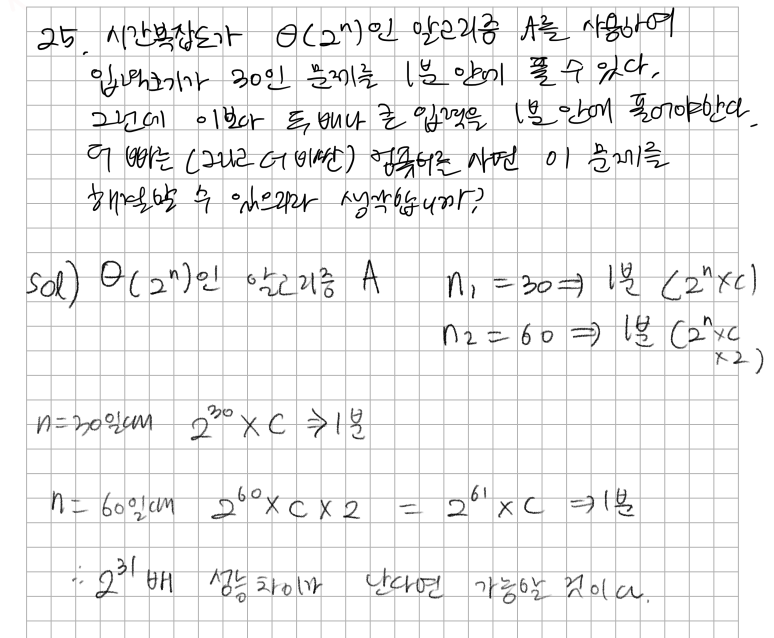 25. 시간복잡도가 Θ(2ⁿ)인 알고리즘 A를 사용하여
입력크기가 30인 문제를 1분 안에 풀 수 있다.
그런데 이보다 두 배나 큰 입력을 1분 안에 풀어야한다.
더 빠른 (그리고 더 비싼) 컴퓨터를 사면 이 문제를
해결할 수 있으리라 생각합니까?
sol) Θ(2ⁿ)인 알고리즘 A n₁ = 30 ⇒ 1분 (2ⁿ×C)
n₂ = 60 ⇒ 1분 (2ⁿ×C
×2)
n=30일때 2³⁰ × C ⇒ 1분
n = 60일때 2⁶⁰ × C × 2 = 2⁶¹ × C ⇒ 1분
∴ 2³¹ 배 성능차이가 난다면 가능할 것이다.